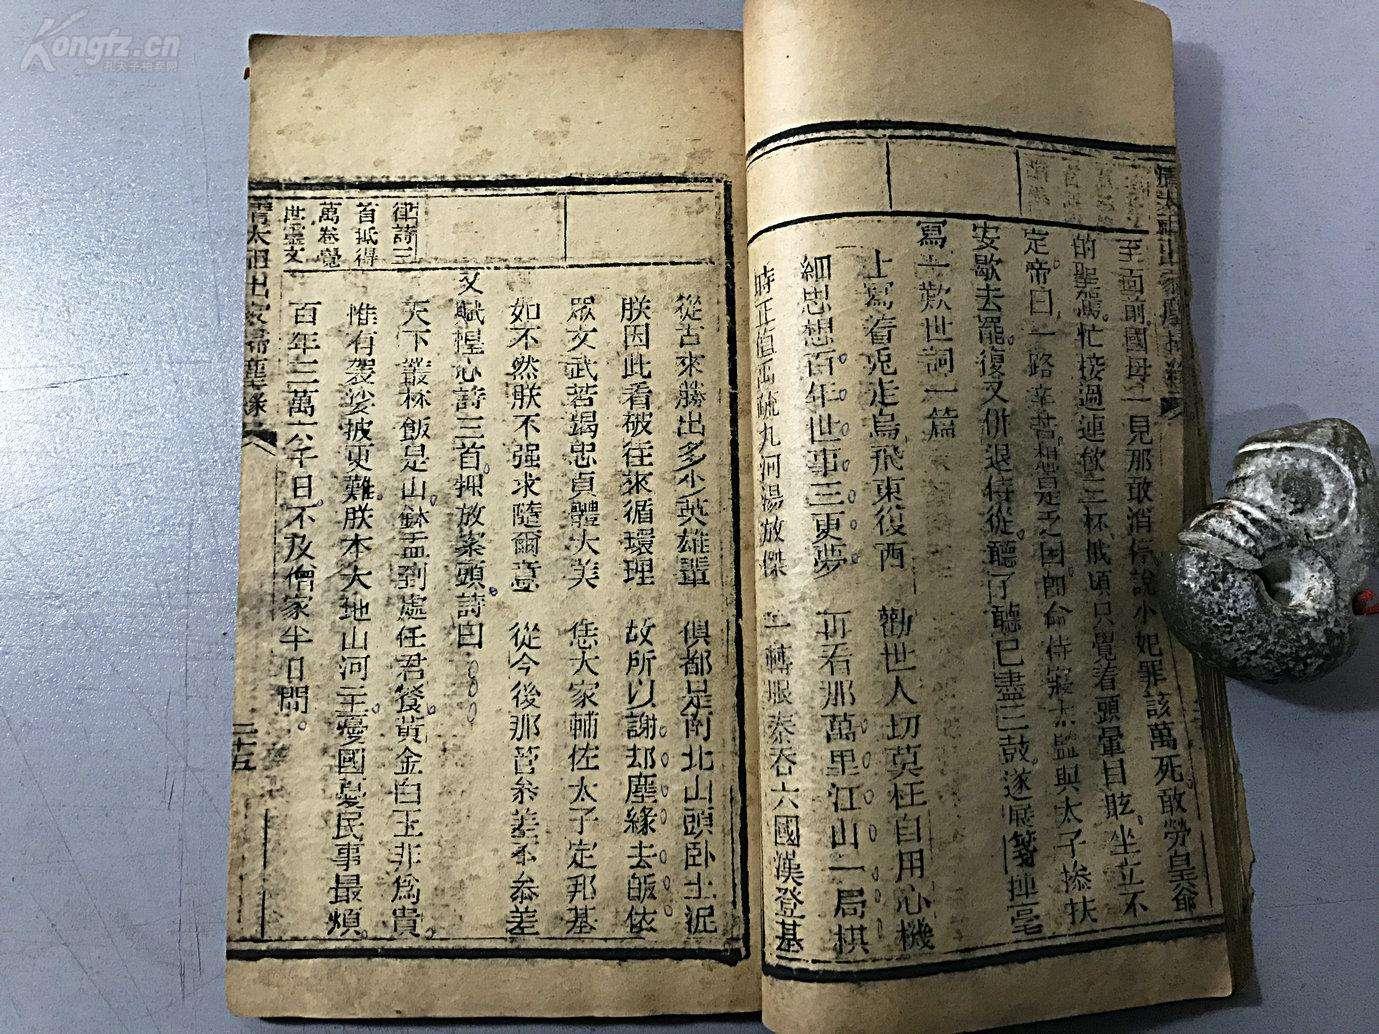 至面前國母一見那敢消停說小妃罪該萬死敢勞皇爺
的聖駕忙接過連飲三杯俄頃只覺着頭暈目眩坐立不
定帝曰一路辛苦相習是之困即命侍寢太監與太子摻扶
安歇去罷復又併退侍從聽了聽已盡三鼓遂展箋揮毫
寫一歎世詞一篇
上寫着兎走烏飛東復西 勸世人切莫枉自用心機
細思想百年世事三更夢 再看那萬里江山一局棋
時正值禹疏九河湯放傑 一轉眼秦吞六國漢登基
從古來勝出多少英雄輩 俱都是南北山頭臥土泥
朕因此看破往來循環理 故所以謝却塵緣去皈依
眾文武若竭忠貞體大美 恁大家輔佐太子定邦基
如不然朕不强求隨爾意 從今後那管叅差不叅差
又賦惺心詩三首押放案頭詩曰
律詩三
首抵得
萬卷覺
世靈文
天下叢林飯是山鉢盂到處任君餐黃金白玉非為貴
惟有袈裟披更難朕本大地山河主憂國憂民事最煩
百年三萬六千日不及僧家半日閒
清太祖出家掃塵緣
二十五
Kongfz.cn